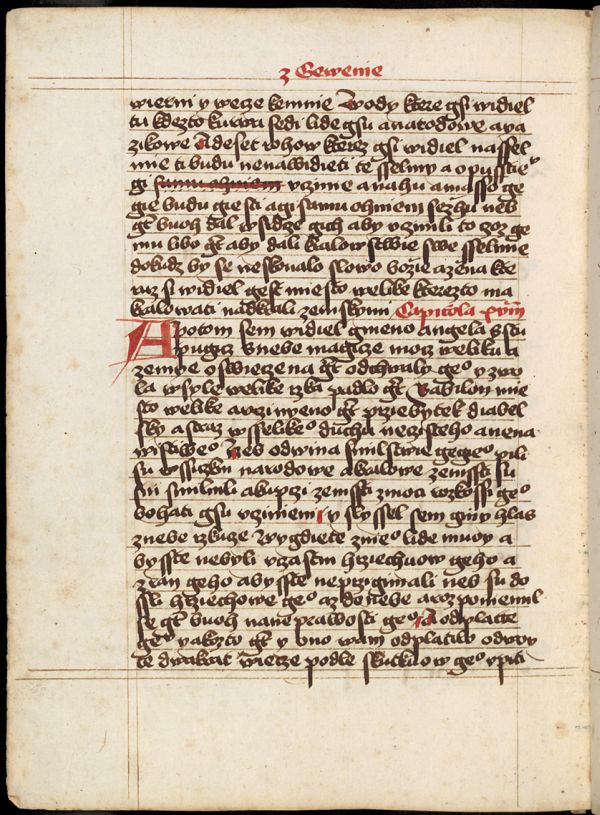 z Gewenie
wierni y wecze kemnie Wody ktere gsi widiel
tu kdezto kurwa sedi lide gsu a narodowe a ya
zikowe A deset rohow kterez gsi widiel na ssel
mie ti budu nenawidieti te sselmy a opusstieº
gi samu ohniem vczinie a nahu a masso ge
gie budu giesti a gi samu ohniem sezhu neb
gt buoh dal w sidze gich aby vczinili to zoz ge
mu libo gt aby dali kralowstwie swe sselmie
dokudz by se neskonalo slowo bozie a zena kte
raz si widiel gest miesto welike kterezto ma
kralowati nad krali zemskymi Capitola xviii
A potom sem widiel gineho angela sstu
pugicz s nebe magicze mocz weliku a
zemie oswiecena gt od chwaly geº y zwo
la w syle welike rzka padlo gt Babilon mie
sto welike a vczinieno gt prziebytek diabel
sky a straz wsselikeº duchu neczisteho a nena
wistiweº Neb od wina smilstwie gegieº pili
su wssiczkni narodowe a kralowe zemssti su
sni smilnili a kupczi zemssti z moci rozkossi geº
bohati gsu vczinieni y slyssel sem giny hlas
z nebe rzkuze wygdiete z nieº lide muoy a
bysste nebyli vczastni hrziechuow geho a
z ran geho abysste neprziginali neb su do
ssli hrziechowe geº az do nebe a rozpomenul
se gt buoh na neprawosti geº A odplatte
geº yakozto gt y ono wam odplatilo odwoy
te dwakrat wiecze podle skutkuow geº v piti